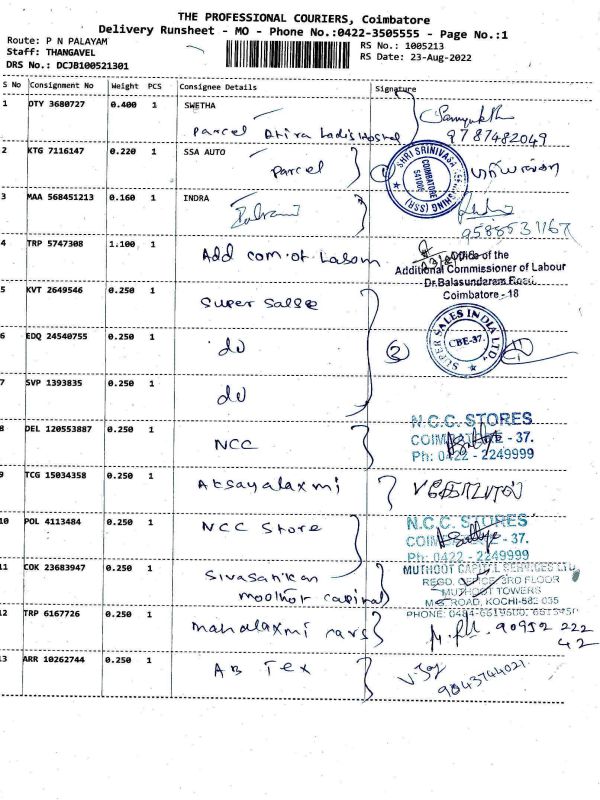 THE PROFESSIONAL COURIERS, Coimbatore
Delivery Runsheet - MO - Phone No.:0422-3505555 - Page No.:1
Route: P N PALAYAM
Staff: THANGAVEL
DRS No.: DCJB100521301
RS No.: 1005213
RS Date: 23-Aug-2022
S No Consignment No Weight PCS Consignee Details Signature
1 DTY 3680727 0.400 1 SWETHA
Parcel Ladis Hostel 9787482049
2 KTG 7116147 0.220 1 SSA AUTO
Parcel 1 SHRI SRINIVASA (SSR) COIMBATORE
3 MAA 568451213 0.160 1 INDRA
9588531167
4 TRP 5747308 1.100 1 Add com. of
Office of the
Additional Commissioner of Labour
Dr.Balasundaram Road,
Coimbatore - 18
5 KVT 2649546 0.250 1 Super Salse
6 EDQ 24540755 0.250 1 do 2 SUPER SALES INDIA LTD. CBE-37.
7 SVP 1393835 0.250 1 do
8 DEL 120553887 0.250 1 NCC
N.C.C. STORES
COIMBATORE - 37.
Ph: 0422 - 2249999
9 TCG 15034358 0.250 1 Aksayalaxmi
10 POL 4113484 0.250 1 NCC Store
N.C.C. STORES
COIMBATORE - 37.
Ph: 0422 - 2249999
11 COK 23683947 0.250 1 Sivasankan
moothot capinal
MUTHOOT CAPITAL SERVICES LTD
REGD. OFFICE, 3RD FLOOR
MUTHOOT TOWERS
M.G. ROAD, KOCHI-682 035
PHONE: 0484-6619600,
12 TRP 6167726 0.250 1 Mahalaxmi cars
90952 222
42
13 ARR 10262744 0.250 1 AB Tex
V. Joy
9043744021